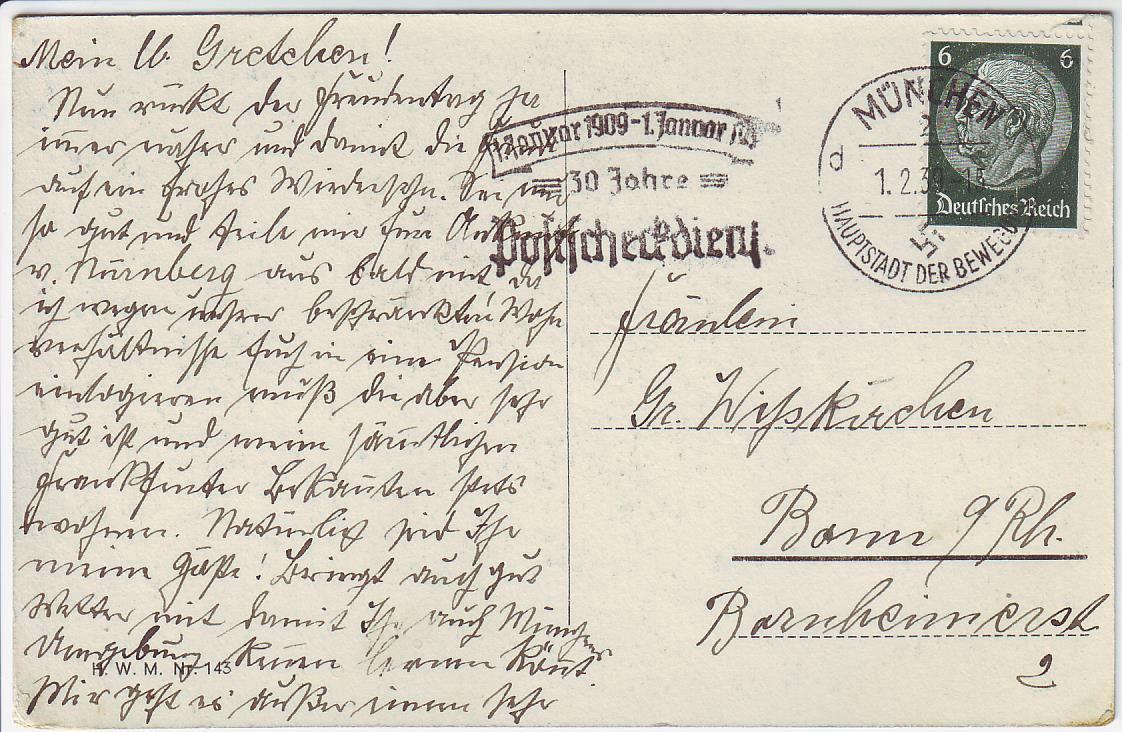 Mein lb. Gretchen!
Nun rückt der Freudentag ja
immer näher und damit die Freude
auf ein frohes Wiedersehn. Sei nun
so gut und teile mir Eure Ankunft
v. Nürnberg aus bald mit da
ich wegen unserer beschränkten Wohn
verhältnisse Euch in eine Pension
einlogieren muß die aber sehr
gut ist und meine sämtlichen
Frankfurter Bekannten stets
wohnen. Natürlich seid Ihr
meine Gäste! Bringt auch gut
Wetter mit damit Ihr auch Münchens
Umgebung kennen lernen könnt
Mir geht es außer einem sehr
H. W. M. Nr. 143
1. Januar 1909 - 1. Januar
30 Jahre
Postscheckdienst
MÜNCHEN
2
d
1.2.39-18
HAUPTSTADT DER BEWEGUNG
6 6
Deutsches Reich
Fräulein
Gr. Wißkirchen
Bonn a/Rh.
Bornheimerst
2